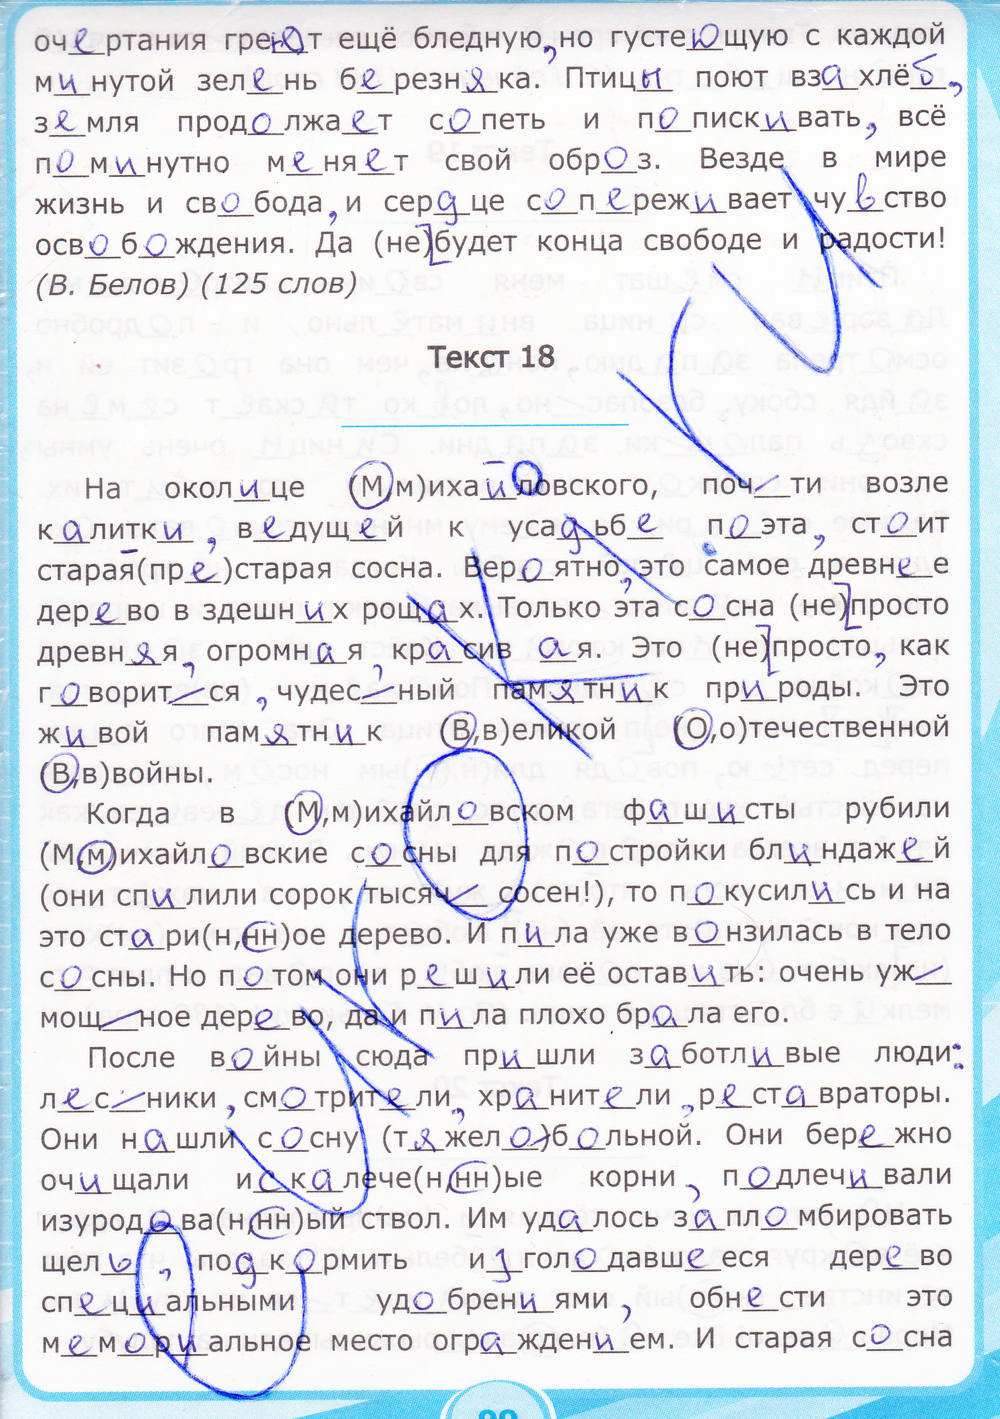 очертания греют ещё бледную, но густеющую с каждой
минутой зелень березняка. Птицы поют взахлёб,
земля продолжает сопеть и попискивать, всё
поминутно меняет свой образ. Везде в мире
жизнь и свобода, и сердце сопереживает чувство
освобождения. Да (не)будет конца свободе и радости!
(В. Белов) (125 слов)
Текст 18
На околице (М,м)ихайловского, почти возле
калитки, ведущей к усадьбе поэта, стоит
старая(пре)старая сосна. Вероятно, это самое древнее
дерево в здешних рощах. Только эта сосна (не)просто
древняя, огромная, красивая. Это (не)просто, как
говорится, чудесный памятник природы. Это
живой памятник (В,в)еликой (О,о)течественной
(В,в)войны.
Когда в (М,м)ихайловском фашисты рубили
(М,м)ихайловские сосны для постройки блиндажей
(они спилили сорок тысяч сосен!), то покусились и на
это стари(н,нн)ое дерево. И пила уже вонзилась в тело
сосны. Но потом они решили её оставить: очень уж
мощное дерево, да и пила плохо брала его.
После войны сюда пришли заботливые люди:
лесники, смотрители, хранители, реставраторы.
Они нашли сосну (тяжело)больной. Они бережно
очищали искалече(н,нн)ые корни, подлечивали
изуродова(н,нн)ый ствол. Им удалось запломбировать
щель, подкормить изголодавшееся дерево
специальными удобрениями, обнести это
мемориальное место ограждением. И старая сосна